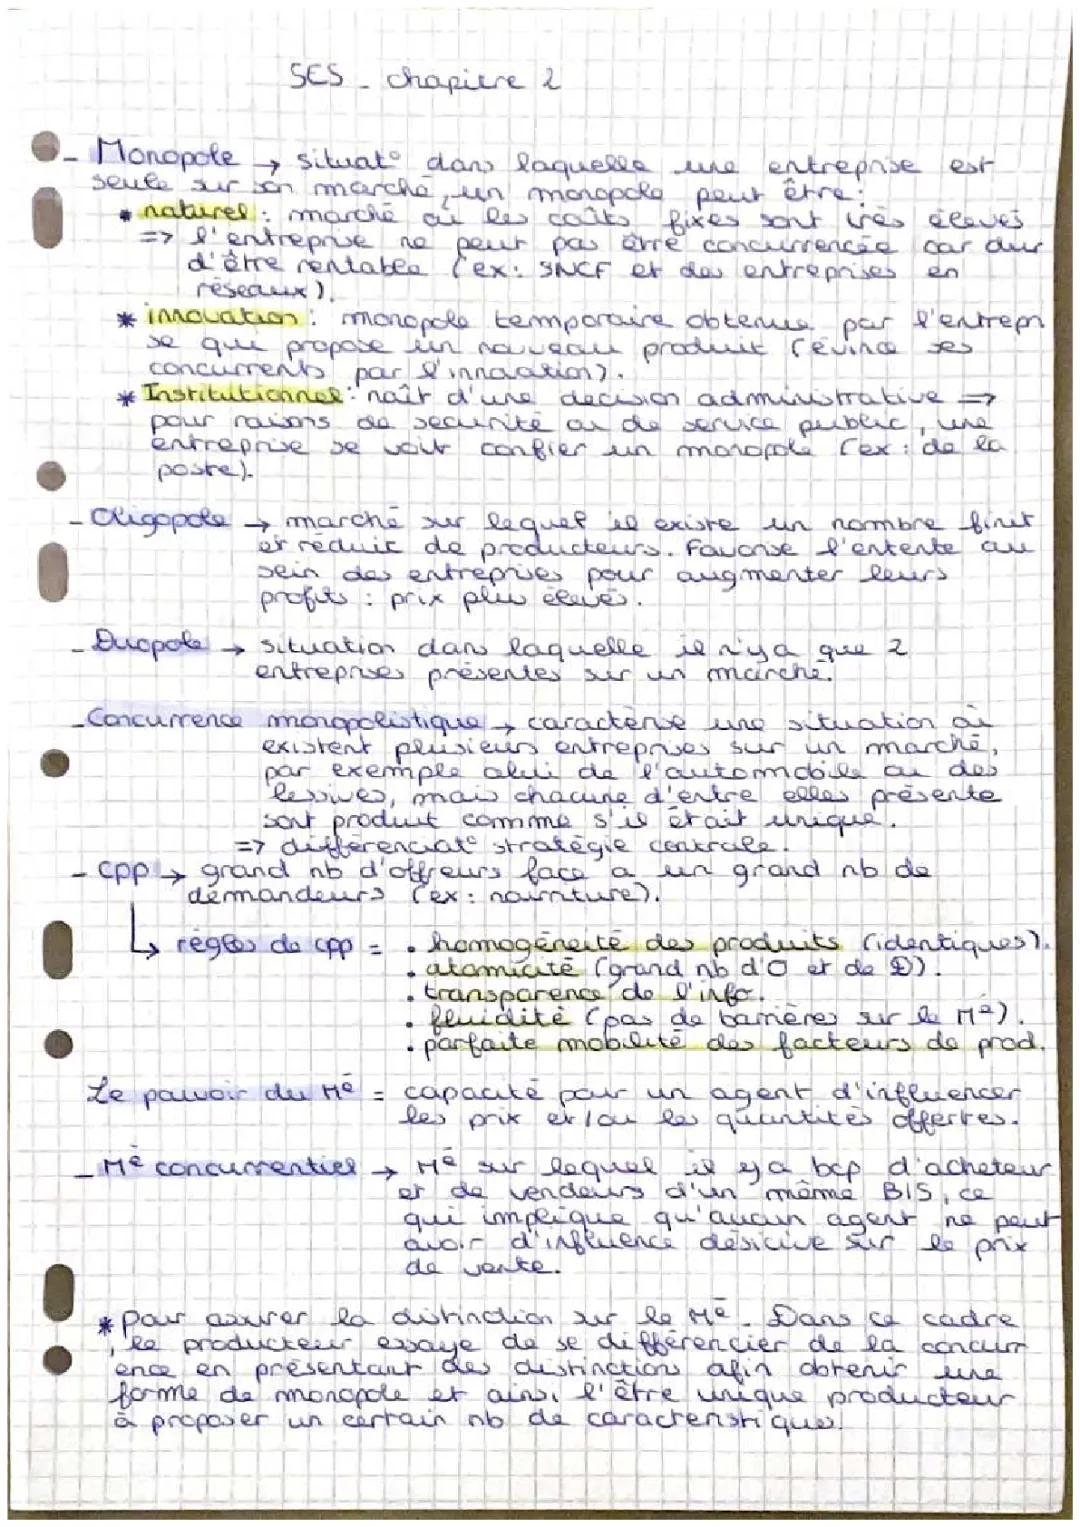 SES _ chapitre 2
- Monopole → situat° dans laquelle une entreprise est
seule sur son marché, un monopole peut être :
* naturel : marché où les coûts fixes sont très élevés
=> l'entreprise ne peut pas être concurrencée car dur
d'être rentable (ex : SNCF et des entreprises en
réseaux).
* innovation : monopole temporaire obtenue par l'entrepri
se qui propose un nouveau produit (évince ses
concurrents par l'innovation).
* Institutionnel : naît d'une decision administrative =>
pour raisons de securité ou de service public, une
entreprise se voit confier un monopole (ex : de la
poste).
- Oligopole → marché sur lequel il existe un nombre finit
et réduit de producteurs. Favorise l'entente au
sein des entreprises pour augmenter leurs
profits : prix plus élevés.
- Duopole → situation dans laquelle il n'y a que 2
entreprises présentes sur un marché.
- Concurrence monopolistique → caractérise une situation où
existent plusieurs entreprises sur un marché,
par exemple celui de l'automobile ou des
lessives, mais chacune d'entre elles présente
sont produit comme s'il était unique.
=> différenciat° stratégie centrale.
- cpp → grand nb d'offreurs face a un grand nb de
demandeurs (ex : nourriture).
↳ règles de cpp = • homogéneité des produits (identiques).
• atomicité (grand nb d'O et de D).
• transparence de l'info.
• fluidité (pas de barrières sur le Mé).
• parfaite mobilité des facteurs de prod.
Le pouvoir du Mé = capacité pour un agent d'influencer
les prix et/ou les quantités offertes.
- Mé concurrentiel → Mé sur lequel il y a bcp d'acheteur
et de vendeurs d'un même B/S, ce
qui implique qu'aucun agent ne peut
avoir d'influence désicive sur le prix
de vente.
* Pour assurer la distinction sur le Mé. Dans ce cadre
, le producteur essaye de se différencier de la concurr
ence en présentant des distinctions afin obtenir une
forme de monopole et ainsi l'être unique producteur
à proposer un certain nb de caracteristiques.